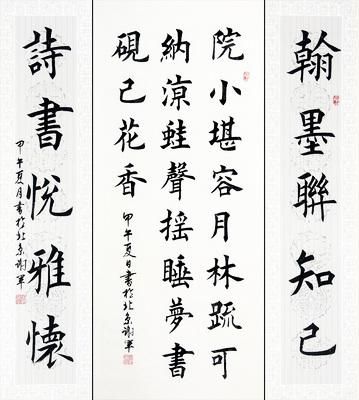 翰墨聯知己
院小堪容月林疏可
納涼蛙聲搖睡夢書
硯已花香
甲午夏日書於北京謝軍
詩書悅雅懷
甲午夏月書於北京謝軍